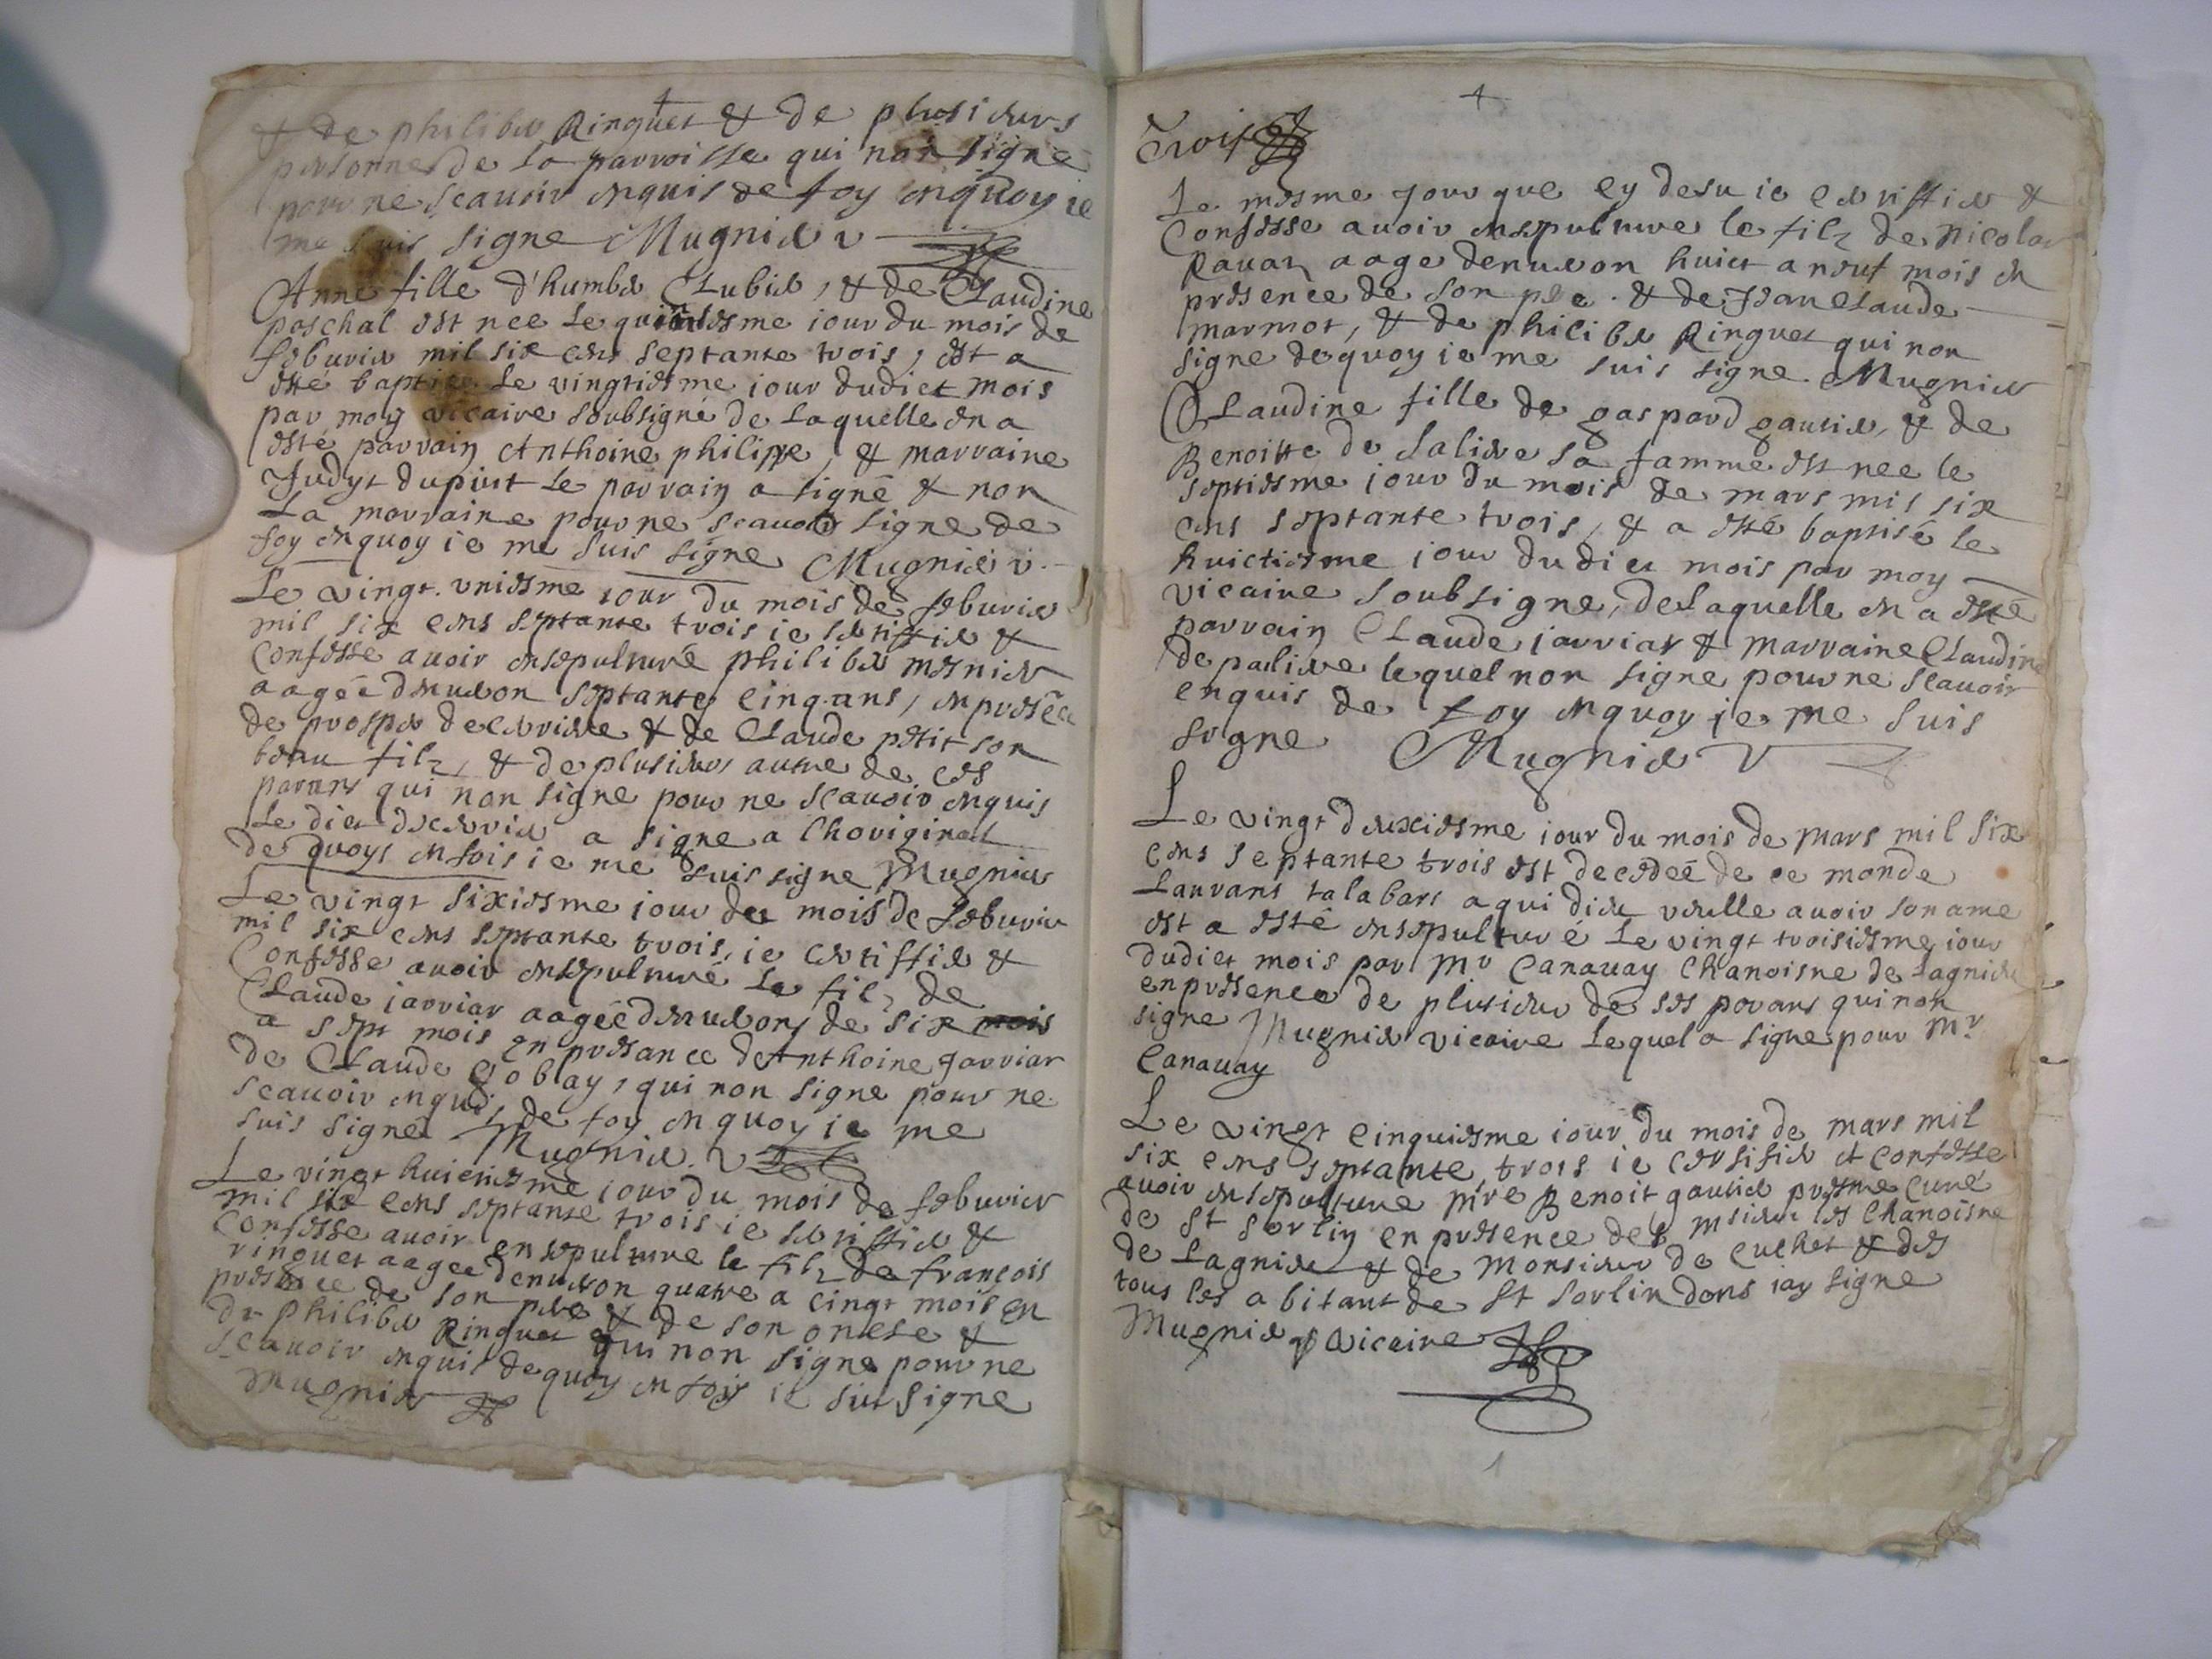 & de philiber Ringuet & de plusieurs
personne de la parroisse qui non signé
pour ne scauoir enquis de foy enquoy ie
me suis signe Mugnier v
Anne fille d'humber Clubier, & de Claudine
paschal est nee le quinsiesme iour du mois de
feburier mil six cens septante trois, est a
esté baptisee le vingtiesme iour dudict mois
par moy vicaire soubsigné de laquelle en a
esté parrain Anthoine philippe, & marraine
Judyt dupuit le parrain a signé & non
la marraine pour ne scauoir signe de
foy enquoy ie me suis signe Mugnier v.
Le vingt uniesme iour du mois de feburier
mil six cens septante trois ie sertiffie &
Confesse auoir ensepulturé philiber mesnier
aagée denuiron septante cinq ans, en presēce
de prosper decurier & de Claude petit son
beau filz, & de plusieurs autre de ces
parans qui non signe pour ne scauoir enquis
Le dict a signe a lhoriginal
de quoys en fois ie me suis signe Mugnier
Le vingt sixiesme iour du mois de feburier
mil six cens septante trois, ie certiffie &
Confesse auoir ensepulturé le filz de
Claude iarriar aagée denuiron de six mois
a sept mois en presance de Anthoine garriar
de Claude Goblay, qui non signe pour ne
scauoir enquis, de foy enquoy ie me
suis signe Mugnier. v
Le vingt huictiesme iour du mois de feburier
mil six cens septante trois ie sertiffie &
Confesse auoir ensepulture le filz de françois
ringuet aagee denuiron quatre a cingt mois en
presence de son pere & de son oncle &
de philiber Ringuet qui non signe pour ne
scauoir enquis de quoy en fois ie suis signe
Mugnier
Trois
Le mesme jour que cy desu ie certiffie &
Confesse auoir ensepulture le filz de nicolas
Rauan aage denuiron huict a neuf mois en
presence de son pere & de Jean Claude
marmot, & de philiber Ringuet qui non
signe dequoy ie me suis signe. Mugnier
Claudine fille de gaspard gautier, & de
Benoitte de salière sa famme est nee le
septiesme iour du mois de mars mil six
cens septante trois, & a esté baptisé le
huictiesme iour dudict mois par moy
vicaire soubsigne, de laquelle en a esté
parrain Claude iarriar & marraine Claudine
de lequel non signe pour ne scauoir
enquis de foy enquoy ie me suis
signe Mugnier v
Le vingt deuxiesme iour du mois de mars mil six
cens septante trois est decedeé de ce monde
Laurans talabars a qui dieu veulle auoir son ame
est a esté ensepulturé Le vingt troisiesme iour
dudict mois par Mr Canauay Chanoisne de Lagnieu
en presence de plusieur de ses parans qui non
signe Mugnier vicaire Lequel a signe pour Mr
Canauay
Le vingt cinquiesme iour du mois de mars mil
six cens septante trois ie certifie et confesse
auoir ensepulture Mre Benoit gautier prestre Curé
de St Sorlin en presence de msieur les Chanoisne
de Lagnieu & de Monsieur de cuchet & des
tous les abitant de St Sorlin dons iay signe
Mugnier vicaire